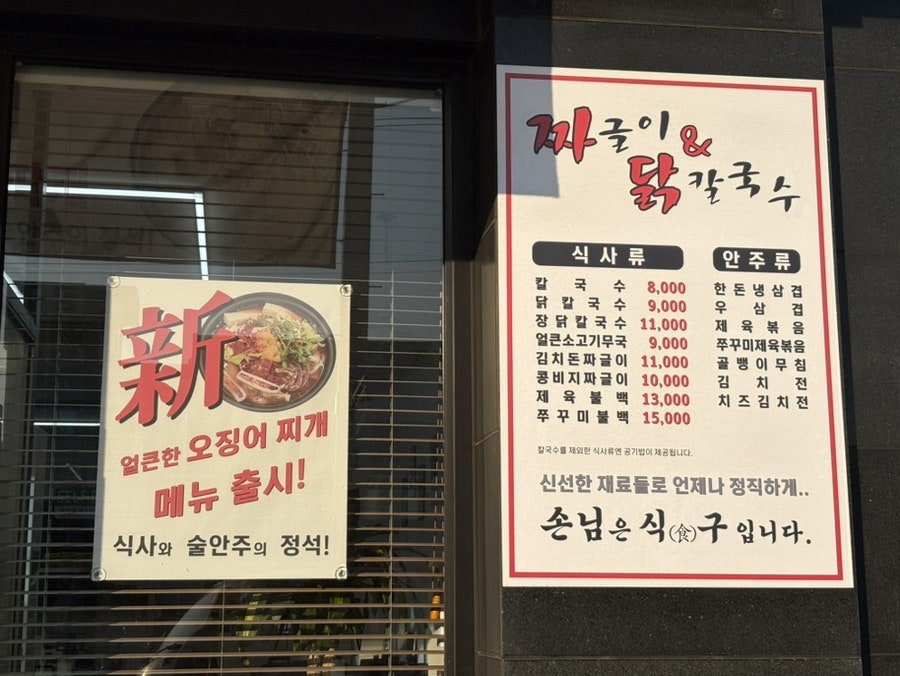 新
얼큰한 오징어 찌개
메뉴 출시!
식사와 술안주의 정석!
짜글이 &
닭칼국수
식사류
칼국수 8,000
닭칼국수 9,000
장닭칼국수 11,000
얼큰소고기무국 9,000
김치돈짜글이 11,000
콩비지짜글이 10,000
제육불백 13,000
쭈꾸미불백 15,000
안주류
한돈냉삼겹
우삼겹
제육볶음
쭈꾸미제육볶음
골뱅이무침
김치전
치즈김치전
칼국수를 제외한 식사류엔 공기밥이 제공됩니다.
신선한 재료들로 언제나 정직하게..
손님은 식(食)구 입니다.